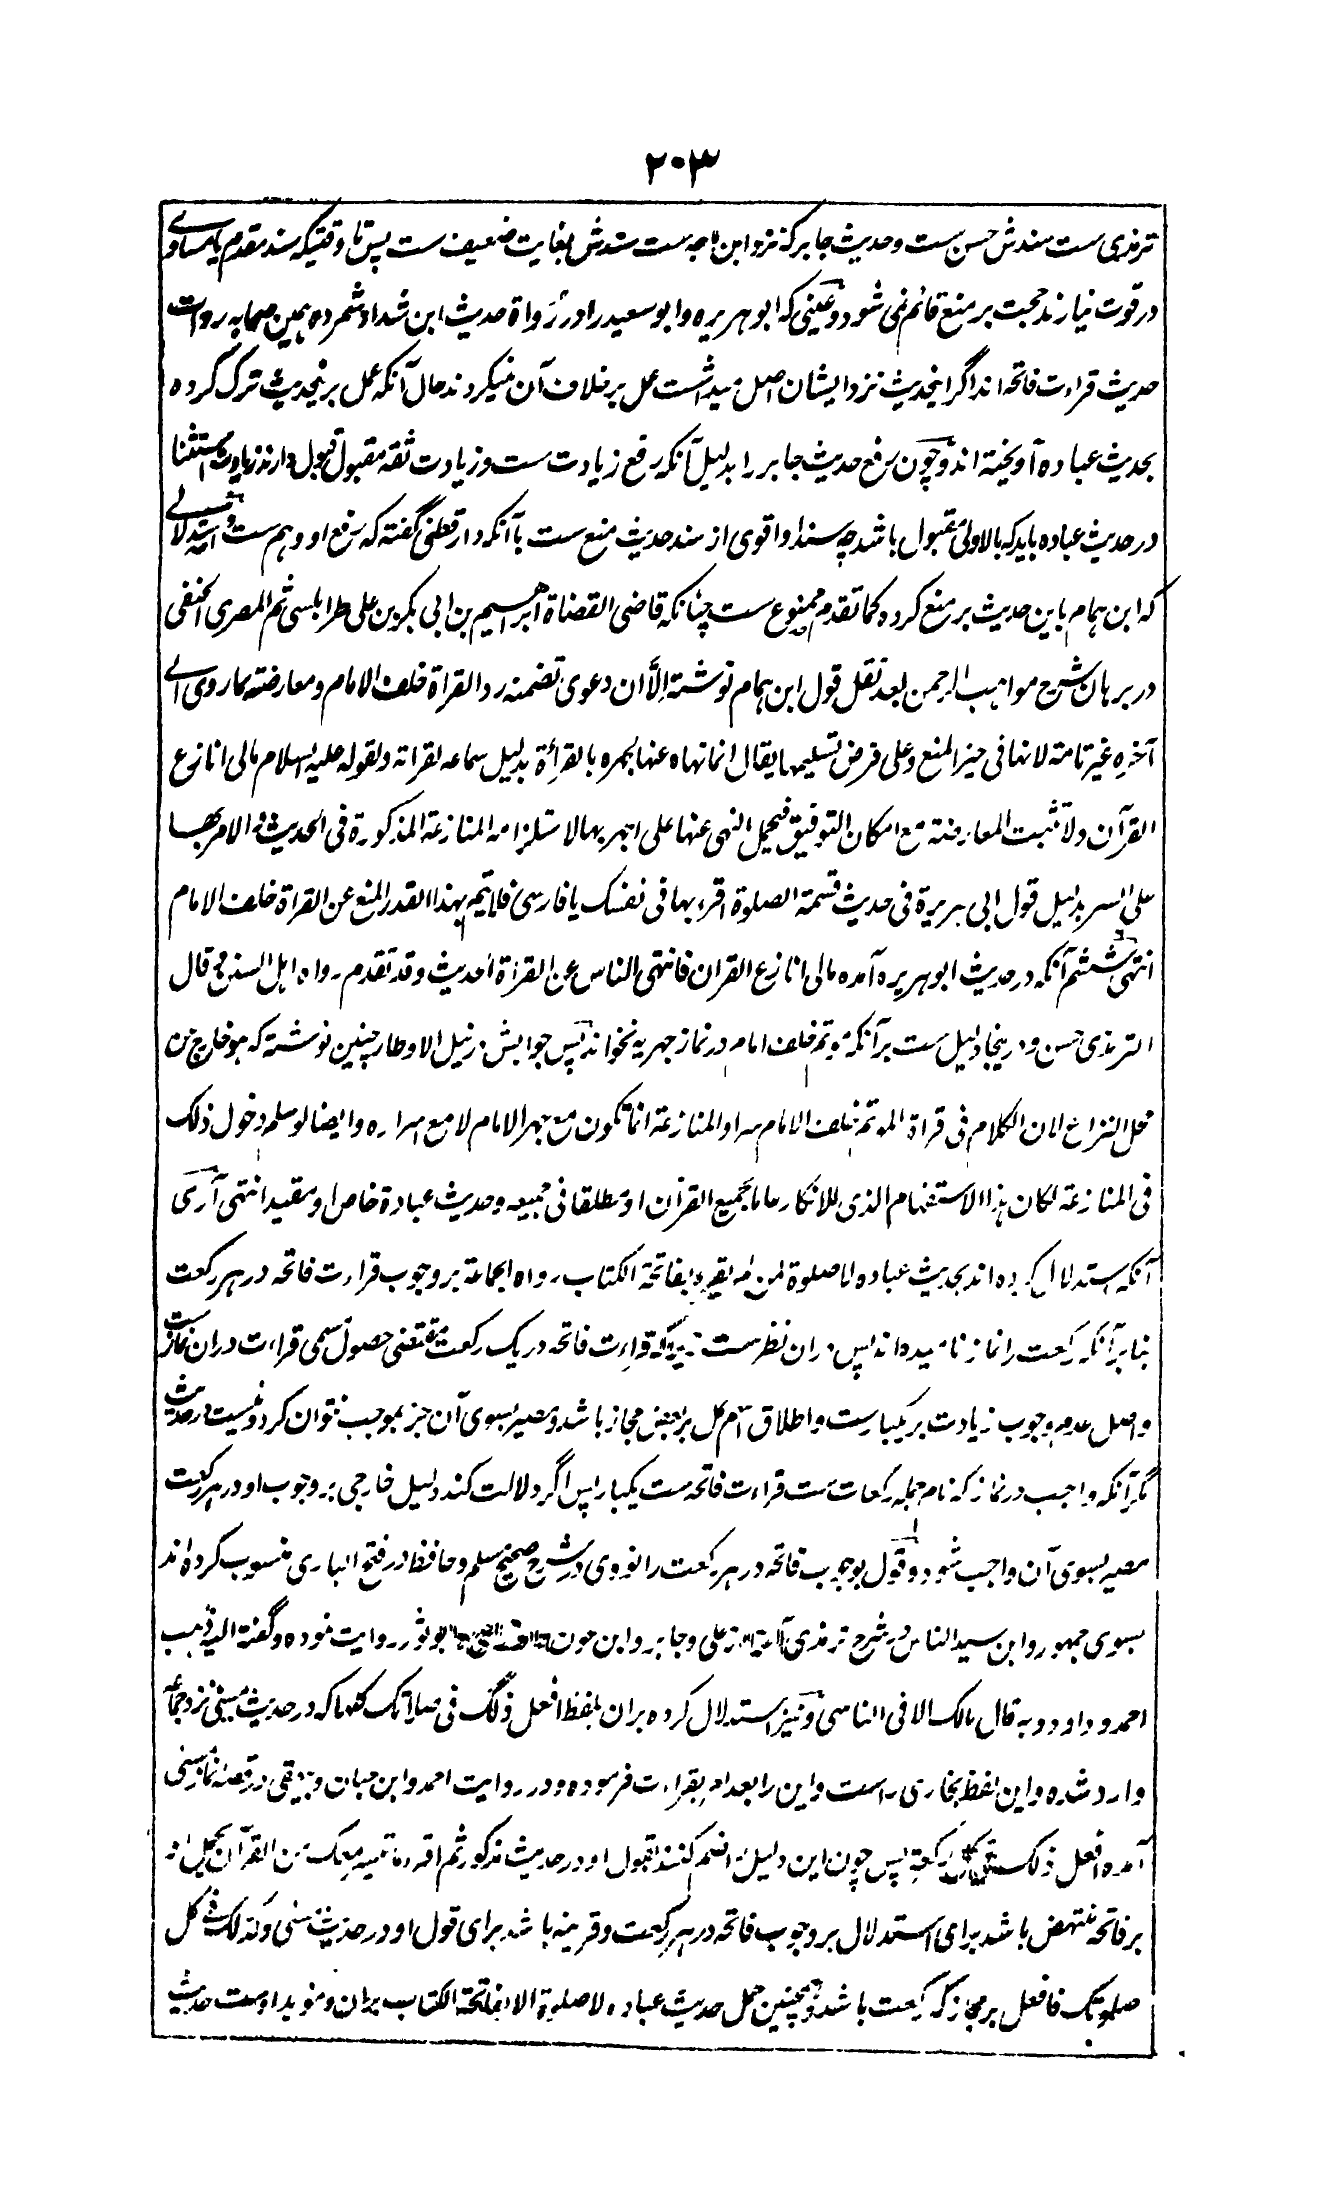 ۲۰۳
ترمذی ست سندش حسن ست و حدیث جابر که نزد ابن ماجه ست سندش بغایت ضعیف ست پس تا وقتیکه سند مقدم یا مساوے
در قوت نیارند حجت بر منع قائم نمی شود و عینی که ابوهریره و ابوسعید را در رواة حدیث ابن شداد شمرده همین صحابه روات
حدیث قراءت فاتحه اند اگر اینحدیث نزد ایشان اصل میداشت عمل بر خلاف آن نمیکردند حال آنکه عمل برینحدیث ترک کرده
بحدیث عباده آویخته اند و چون رفع حدیث جابر را بدلیل آنکه رفع زیادت ست و زیادت ثقه مقبول قبول دارند زیادت استثنا
در حدیث عباده باید که بالاولی مقبول باشد چه سند او اقوی از سند حدیث منع ست با آنکه دارقطنی گفته که رفع او وهم ست و استدلالے
که ابن همام باین حدیث بر منع کرده کما تقدم ممنوع ست چنانکه قاضی القضاة ابراهیم بن ابی بکر بن علی طرابلسی ثم المصری الحنفی
در برهان شرح مواهب الرحمن بعد نقل قول ابن همام نوشته الا ان دعوی تضمنه رد القراة خلف الامام و معارضته بما روی الے
آخره غیر تامة لانها فی حیز المنع و علی فرض تسلیمها یقال انما نهاه عنها لجهره بالقرأة بدلیل سماعه لقراته و لقوله علیه السلام مالی انازع
القرآن و لا تثبت المعارضة مع امکان التوفیق فیحمل النهی عنها علی الجهر بها لاستلزامه المنازعة المذکورة فی الحدیث و الامر بها
علی السر بدلیل قول ابی هریرة فی حدیث قسمة الصلوة اقرء بها فی نفسک یا فارسی فلا یتم بهذا القدر المنع عن القراة خلف الامام
انتهی ششم آنکه در حدیث ابوهریره آمده مالی انازع القران فانتهی الناس عن القراة الحدیث و قد تقدم رواه اهل السنن و قال
الترمذی حسن و درینجا دلیل ست بر آنکه مؤتم خلف امام در نماز جهریه نخواند پس جوابش در نیل الاوطار چنین نوشته که هو خارج عن
محل النزاع لان الکلام فی قراة المؤتم خلف الامام سرا و المنازعة انما تکون مع جهر الامام لا مع اسراره و ایضا لو سلم دخول ذلک
فی المنازعة لکان هذا الاستفهام الذی للانکار عاما لجمیع القرآن او مطلقا فی جمیعه و حدیث عبادة خاص او مقید انتهی آری
آنکه استدلال کرده اند بحدیث عباده لا صلوة لمن لم یقرء بفاتحة الکتاب رواه الجماعة بر وجوب قراءت فاتحه در هر رکعت
بنابر آنکه رکعت را نماز نامیده اند پس دران نظر ست زیراکه قراءت فاتحه در یک رکعت مقتضی حصول مسمی قراءت دران نماز ست
و اصل عدم وجوب زیادت بر یکبار ست و اطلاق اسم کل بر بعض مجاز باشد و مصیر بسوی آن جز بموجب نتوان کرد و نیست در حدیث
مگر آنکه واجب در نماز که نام جمله رکعات ست قراءت فاتحه ست یکبار پس اگر دلالت کند دلیل خارجی بر وجوب او در هر رکعت
مصیر بسوی آن واجب شود و قول بوجوب فاتحه در هر رکعت را نووی در شرح صحیح مسلم و حافظ در فتح الباری منسوب کرده اند
بسوی جمهور و ابن سید الناس در شرح ترمذی از علی و جابر و ابن عون ابوثور روایت نموده و گفته الیه ذهب
احمد و داود و به قال مالک الا فی الناسی و نیز استدلال کرده بران بلفظ افعل ذلک فی صلاتک کلها که در حدیث مسیئی نزد جماعه
وارد شده و این لفظ بخاری راست و این را بعد امر بقراءت فرموده و در روایت احمد و ابن حبان و بیهقی در قصهٔ نماز مسیئی
آمده افعل ذلک فی کل رکعة پس چون این دلیل را ضم کنند بقول او در حدیث مذکور ثم اقرء ما تیسر معک من القرآن بحمل او
بر فاتحه منتهض باشد برای استدلال بر وجوب فاتحه در هر رکعت و قرینه باشد برای قول او در حدیث مسئی و کذلک فی کل
صلوتک فافعل بر مجاز که رکعت باشد و همچنین حمل حدیث عباده لا صلوة الا بفاتحة الکتاب بران و مؤید اوست حدیث